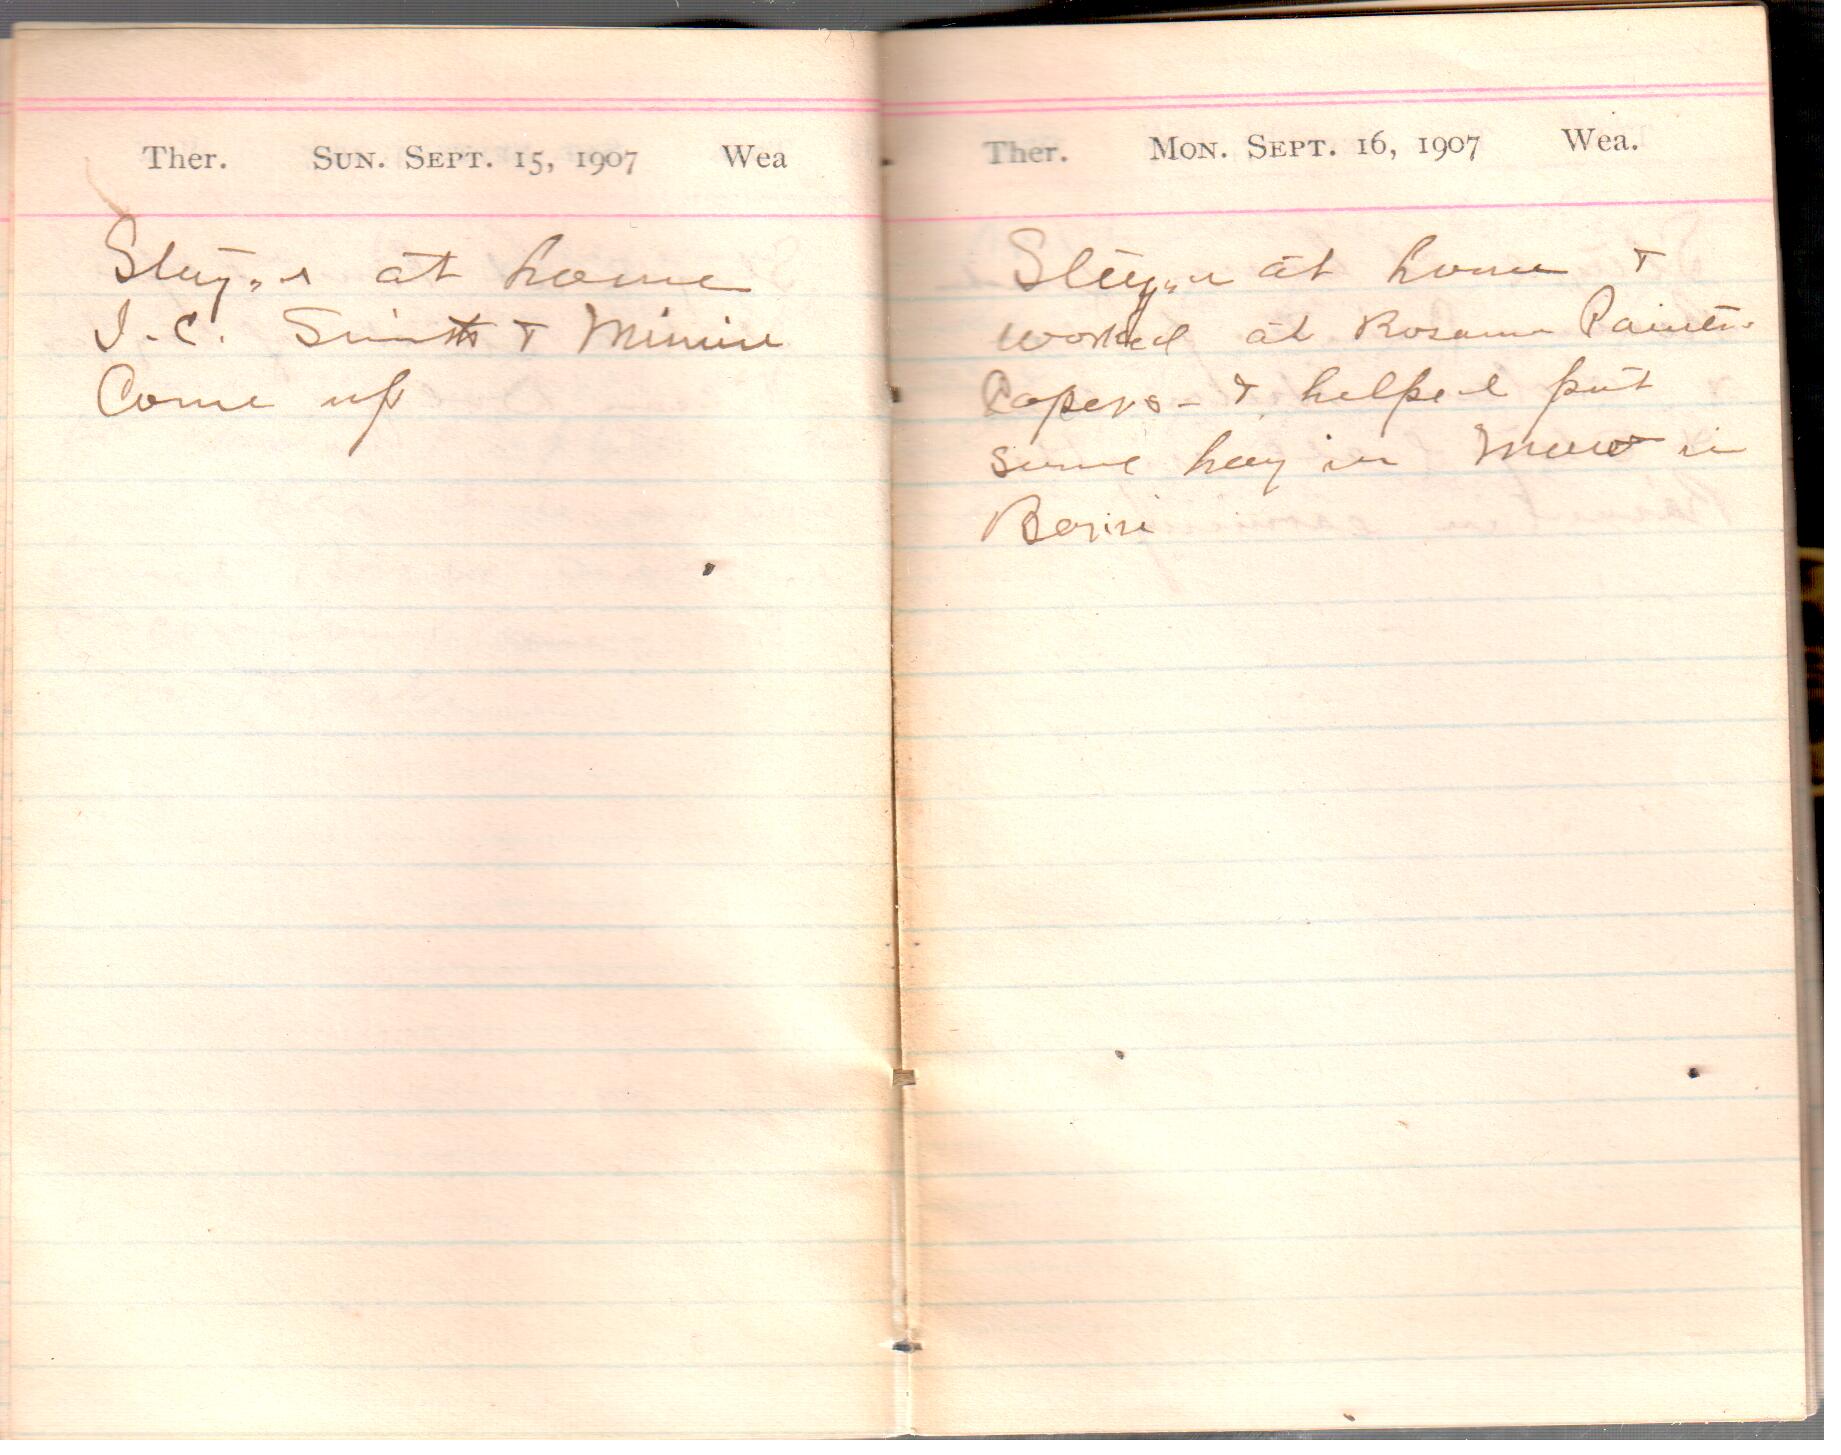 Ther. SUN. SEPT. 15, 1907 Wea
Stay,,d at home
I.C. Smith & Minnie
Come up
Ther. MON. SEPT. 16, 1907 Wea.
Stay,,d at home &
worked at Rosana
Papers - & helped put
some hay in Mow in